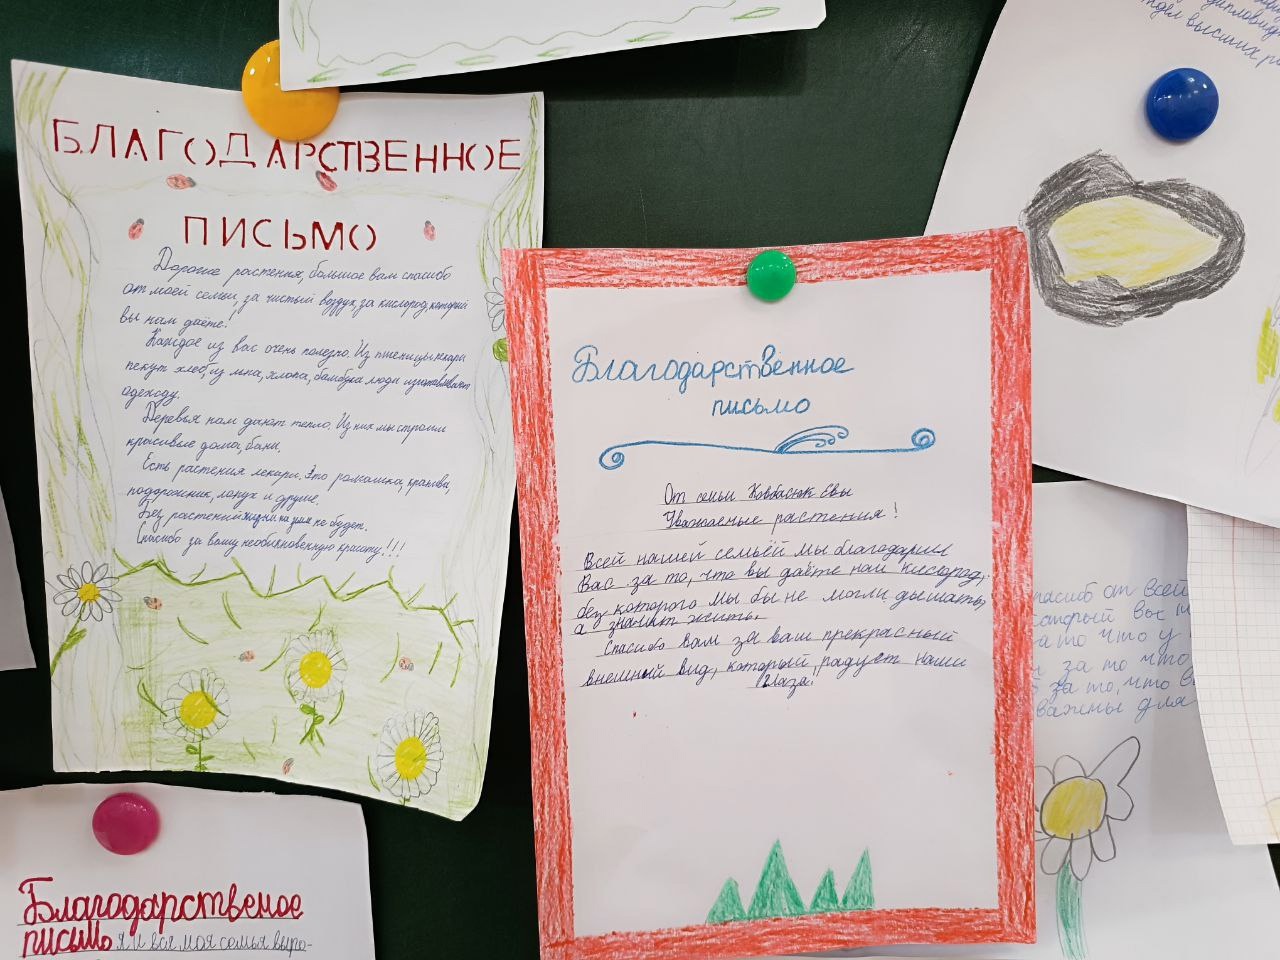 БЛАГОДАРСТВЕННОЕ
ПИСЬМО
Дорогие растения, большое вам спасибо
от моей семьи, за чистый воздух, за кислород, который
вы нам даёте!
Каждое из вас очень полезно. Из пшеницы пекари
пекут хлеб, из льна, хлопка, бамбука люди изготавливают
одежду.
Деревья нам дают тепло. Из них мы строим
красивые дома, бани.
Есть растения лекари. Это ромашка, крапива,
подорожник, лопух и другие.
Без растений жизни на земле не будет.
Спасибо за вашу необыкновенную красоту!!!
Благодарственное
письмо
От семьи
Уважаемые растения!
Всей нашей семьёй мы благодарим
Вас за то, что вы даёте нам кислород,
без которого мы бы не могли дышать,
а значит жить.
Спасибо вам за ваш прекрасный
внешний вид, который радует наши
глаза!
Благодарственое
письмо я и вся моя семья выро-
высших
от всей
за то что у
за то что
за то, что в
важны для